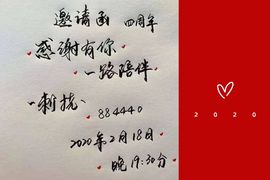 邀请函 四周年
感谢有你
一路陪伴
884440
2020年2月18日
晚19:30分
2020